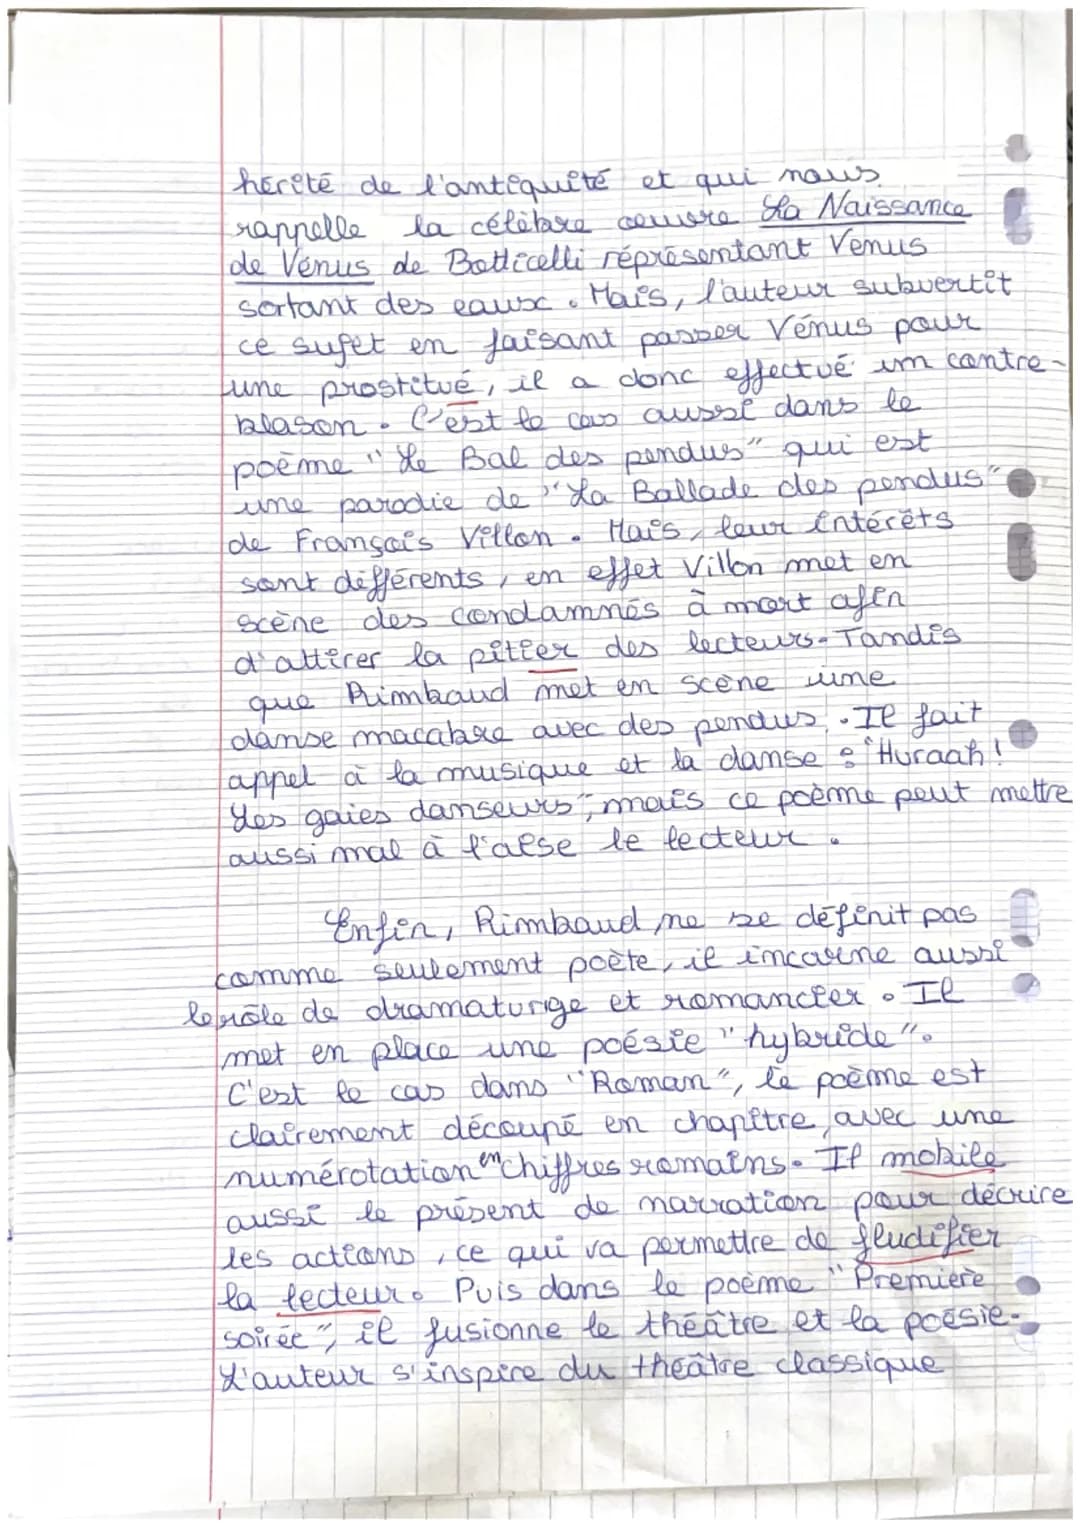 hérité de l'antiquité et qui nous
rappelle la célèbre oeuvre La Naissance
de Vénus de Botticelli réprésentant Venus
sortant des eaux. Mais, l'auteur subvertit
ce sujet en faisant passer Vénus pour
une prostitué, il a donc effectué un contre-
blason. C'est le cas aussi dans le
poème "Le Bal des pendus" qui est
une parodie de "La Ballade des pendus"
de François Villon. Mais, leur intérêts
sont différents, en effet Villon met en
scène des condamnés à mort afin
d'attirer la pitier des lecteurs. Tandis
que Rimbaud met en scène une
danse macabre avec des pendus. Il fait
appel à la musique et la danse : "Huraah !
Les gaies danseurs", mais ce poème peut mettre
aussi mal à l'aise le lecteur.
Enfin, Rimbaud ne se définit pas
comme seulement poète, il incarne aussi
le rôle de dramaturge et romancier. Il
met en place une poésie "hybride".
C'est le cas dans "Roman", le poème est
clairement découpé en chapitre, avec une
numérotation en chiffres romains. Il mobile
aussi le présent de narration pour décrire
les actions, ce qui va permettre de fludifier
la lecteur. Puis dans le poème "Première
soirée", il fusionne le théâtre et la poésie.
L'auteur s'inspire du théâtre classique